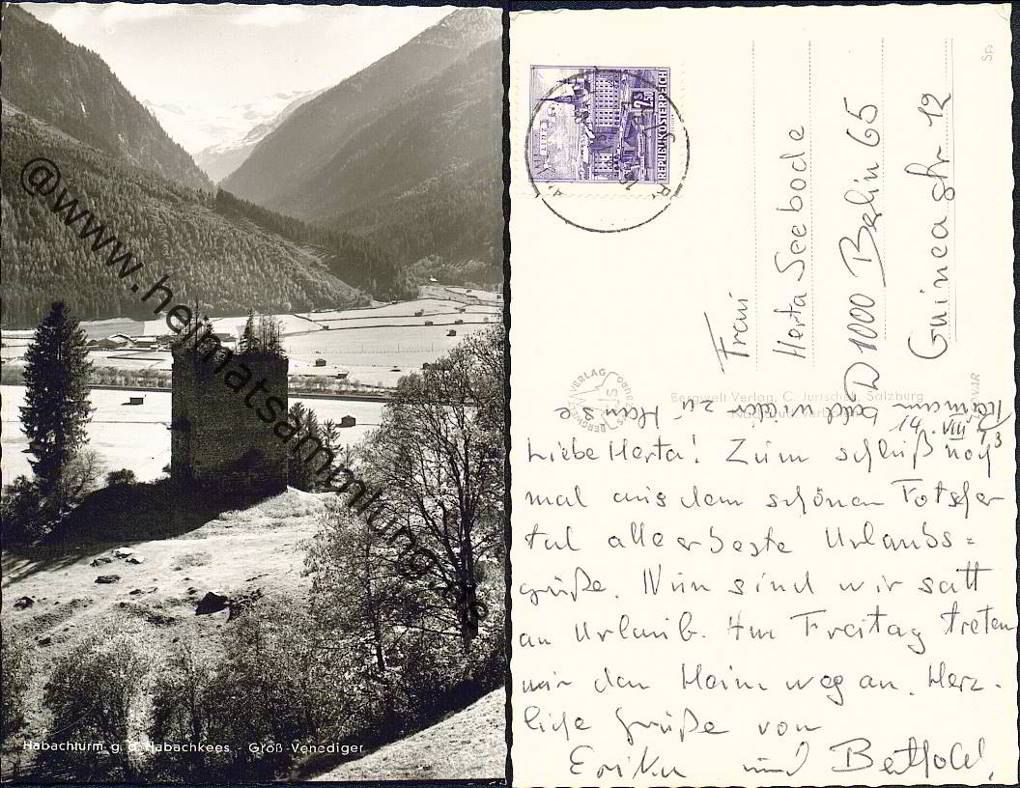 @www.heimatsammlung.de
Habachturm g. d. Habachkees - Groß Venediger
REPUBLIK ÖSTERREICH
Frau
Herta Seebode
D 1000 Berlin 65
Guineastr 12
BERGWELT VERLAG
Bergwelt Verlag, C. Jurischek, Salzburg
bald wieder zu Hause
Liebe Herta! Zum schluß noch
mal aus dem schönen
tal allerbeste Urlaubs=
grüße. Nun sind wir satt
an Urlaub. Am Freitag treten
wir den Heimweg an. Herz-
liche Grüße von
Erika und Berthold.